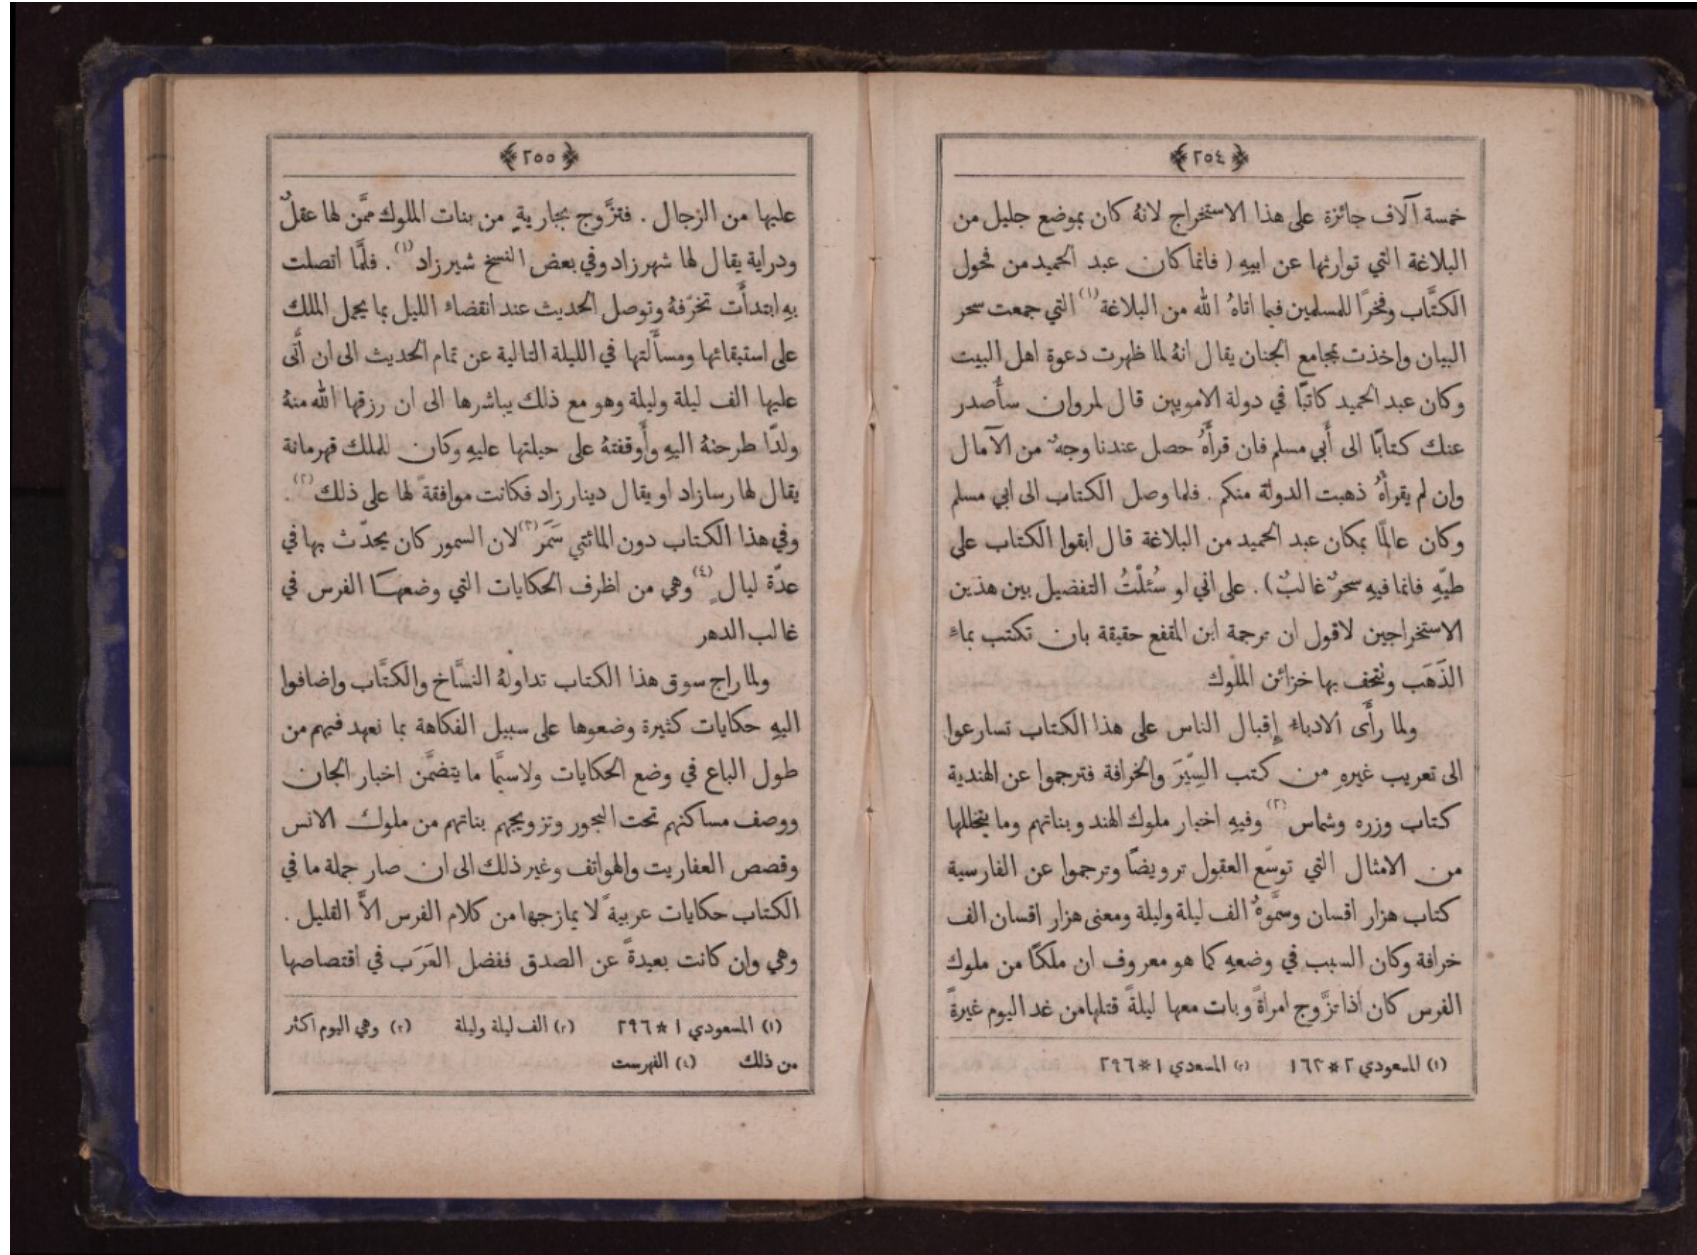 ﴿٢٥٤﴾
خمسة آلاف جائزة على هذا الاستخراج لانهُ كان بموضع جليل من
البلاغة التي توارثها عن ابيهِ (فانما كان عبد الحميد من فحول
الكتَّاب وفخرًا للمسلمين فيما اتاهُ الله من البلاغة(١) التي جمعت سحر
البيان واخذت بمجامع الجنان يقال انهُ لما ظهرت دعوة اهل البيت
وكان عبد الحميد كاتبًا في دولة الامويين قال لمروان سأصدر
عنك كتابًا الى أبي مسلم فان قرأَهُ حصل عندنا وجهٌ من الآمال
وان لم يقرأْهُ ذهبت الدولة منكم . فلما وصل الكتاب الى ابي مسلم
وكان عالمًا بمكان عبد الحميد من البلاغة قال ابقوا الكتاب على
طيّهِ فانما فيهِ سحرٌ غالبٌ) . على اني لو سُئلْتُ التفضيل بين هذين
الاستخراجين لاقول ان ترجمة ابن المقفع حقيقة بان تكتب بماء
الذَهَب وتتحف بها خزائن الملوك
ولما رأَى الادباء إِقبال الناس على هذا الكتاب تسارعوا
الى تعريب غيرهِ من كتب السِيَرَ والخرافة فترجموا عن الهندية
كتاب وزره وشماس(٢) وفيهِ اخبار ملوك الهند وبناتهم وما يتخللها
من الامثال التي توسّع العقول ترويضًا وترجموا عن الفارسية
كتاب هزار افسان وسمَّوهُ الف ليلة وليلة ومعنى هزار افسان الف
خرافة وكان السبب في وضعهِ كما هو معروف ان ملكًا من ملوك
الفرس كان اذا تزَّوج امرأةً وبات معها ليلةً قتلها من غد اليوم غيرةً
(١) المسعودي ٢*١٦٢ (٢) المسعدي ١*٢٩٦
﴿٢٥٥﴾
عليها من الرجال . فتزَّوج بجاريةٍ من بنات الملوك ممَّن لها عقلٌ
ودراية يقال لها شهرزاد وفي بعض النسخ شيرزاد(١). فلمَّا اتصلت
بهِ ابتدأَت تخرّفهُ وتوصل الحديث عند انقضاء الليل بما يحمل الملك
على استبقائها ومسأَلتها في الليلة التالية عن تمام الحديث الى ان أَتى
عليها الف ليلة وليلة وهو مع ذلك يباشرها الى ان رزقها الله منهُ
ولدًا طرحتهُ اليهِ وأَوقفتهُ على حيلتها عليهِ وكان للملك قهرمانة
يقال لها رسازاد او يقال دينارزاد فكانت موافقةً لها على ذلك(٢).
وفي هذا الكتاب دون المائتي سَمَر(٣) لان السمور كان يحدّث بها في
عدّة ليالٍ(٤) وهي من اظرف الحكايات التي وضعها الفرس في
غالب الدهر
ولما راج سوق هذا الكتاب تداولهُ النسَّاخ والكتَّاب واضافوا
اليهِ حكايات كثيرة وضعوها على سبيل الفكاهة بما نعهد فيهم من
طول الباع في وضع الحكايات ولاسيَّما ما يتضمَّن اخبار الجان
ووصف مساكنهم تحت البحور وتزويجهم بناتهم من ملوك الانس
وقصص العفاريت والهواتف وغير ذلك الى ان صار جملة ما في
الكتاب حكايات عربيةً لا يمازجها من كلام الفرس الاَّ القليل .
وهي وان كانت بعيدةً عن الصدق ففضل العَرَب في اقتصاصها
(١) المسعودي ١*٢٩٦ (٢) الف ليلة وليلة (٣) وهي اليوم اكثر
من ذلك (٤) الفهرست